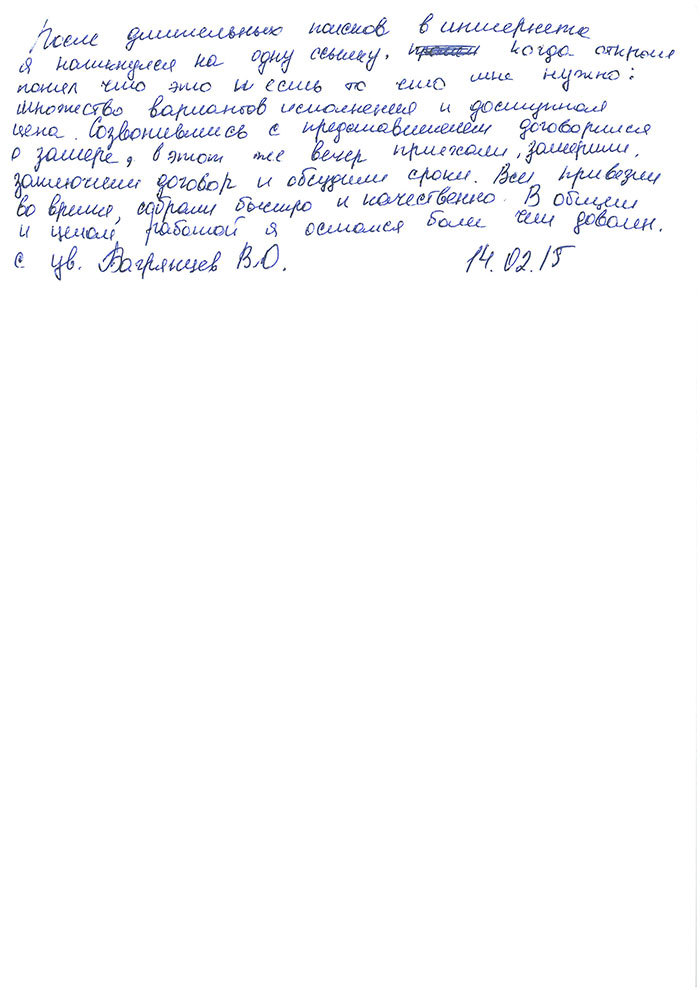 После длительных поисков в интернете
я наткнулся на одну ссылку. когда открыл
понял что это и есть то что мне нужно:
множество вариантов исполнения и доступная
цена. Созвонившись с представителем договорился
о замере, в этот же вечер приехали, замерили,
заключили договор и обсудили сроки. Все привезли
во время, собрали быстро и качественно. В общем
и целом работой я остался более чем доволен.
с ув. Вагрянцев В.О. 14.02.15